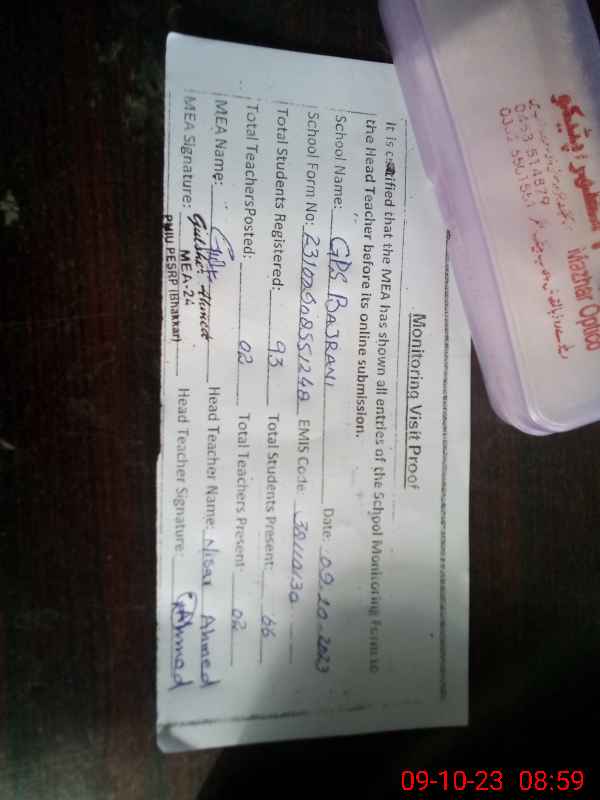 Monitoring Visit Proof
It is certified that the MEA has shown all entries of the School Monitoring Form to
the Head Teacher before its online submission.
School Name: GPS BAJRANI Date: 09.10-2023
School Form No: EMIS Code: 38110130
Total Students Registered: 93 Total Students Present: 66
Total TeachersPosted: 02 Total Teachers Present: 02
MEA Name: Head Teacher Name: Nisar Ahmed
MEA Signature: Gulsher Ahmed Head Teacher Signature: Ahmad
MEA-24
PMIU PESRP (Bhakkar)
Mazhar Optico
0453 514879
09-10-23 08:59